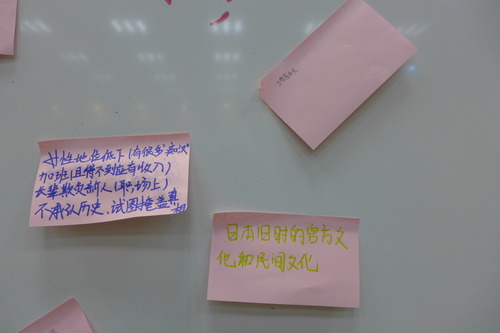 女性地位低下(有很多“痴汉”
加班(且得不到应有收入)
长辈欺负新人(职场上)
不承认历史、试图掩盖真
相
日本旧时的官方文
化和民间文化